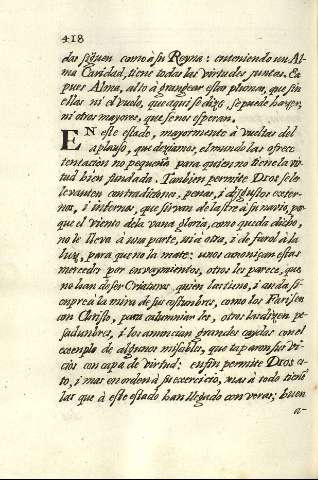 418
das siguen como à su Reyna: enteniendo un Al-
ma Caridad, tiene todas las virtudes juntas. Ea
pues Alma, alto à grangear estas plumas, que sin
ellas ni el vuelo, que aqui se dize, se puede hazer,
ni otros mayores, que se nos esperan.
EN este estado, mayormente à vueltas del
aplauso, que deziamos, el mundo las ofrece
tentacion no pequeña para quien no tiene la vir-
tud bien fundada. Tanbien permite Dios se le
levanten contradicions, penas, i disgustos exter-
nos, i internos, que sirvan de lastre à su navio, por-
que el viento de la vana gloria, como queda dicho,
no le lleva à una parte, ni a otra, i de farol à la
luz, para que no la mate: unos canonizan estas
mercedes por envaymientos, otros les parece, que
no luan de ser Criaturas quien las tuvo, i andan si-
enpre à la mira de sus costumbres, como los Fariseos
con Christo, para calumniarles, otros les dizen pe-
sadumbres, i los amenazan grandes caydas con el
exemplo de algunos misables, que taparon sus vi-
cios con capa de virtud: en fin permite Dios es-
to, i mas en orden à su exercicio, mas à todo tiene
las que à este estado han llegado con veras, buen
a-